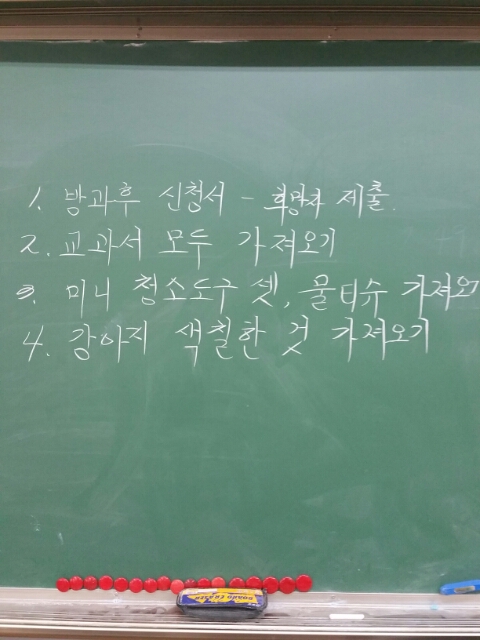 1. 방과후 신청서 - 희망자 제출.
2. 교과서 모두 가져오기
3. 미니 청소도구 셋, 물티슈 가져오기
4. 강아지 색칠한 것 가져오기